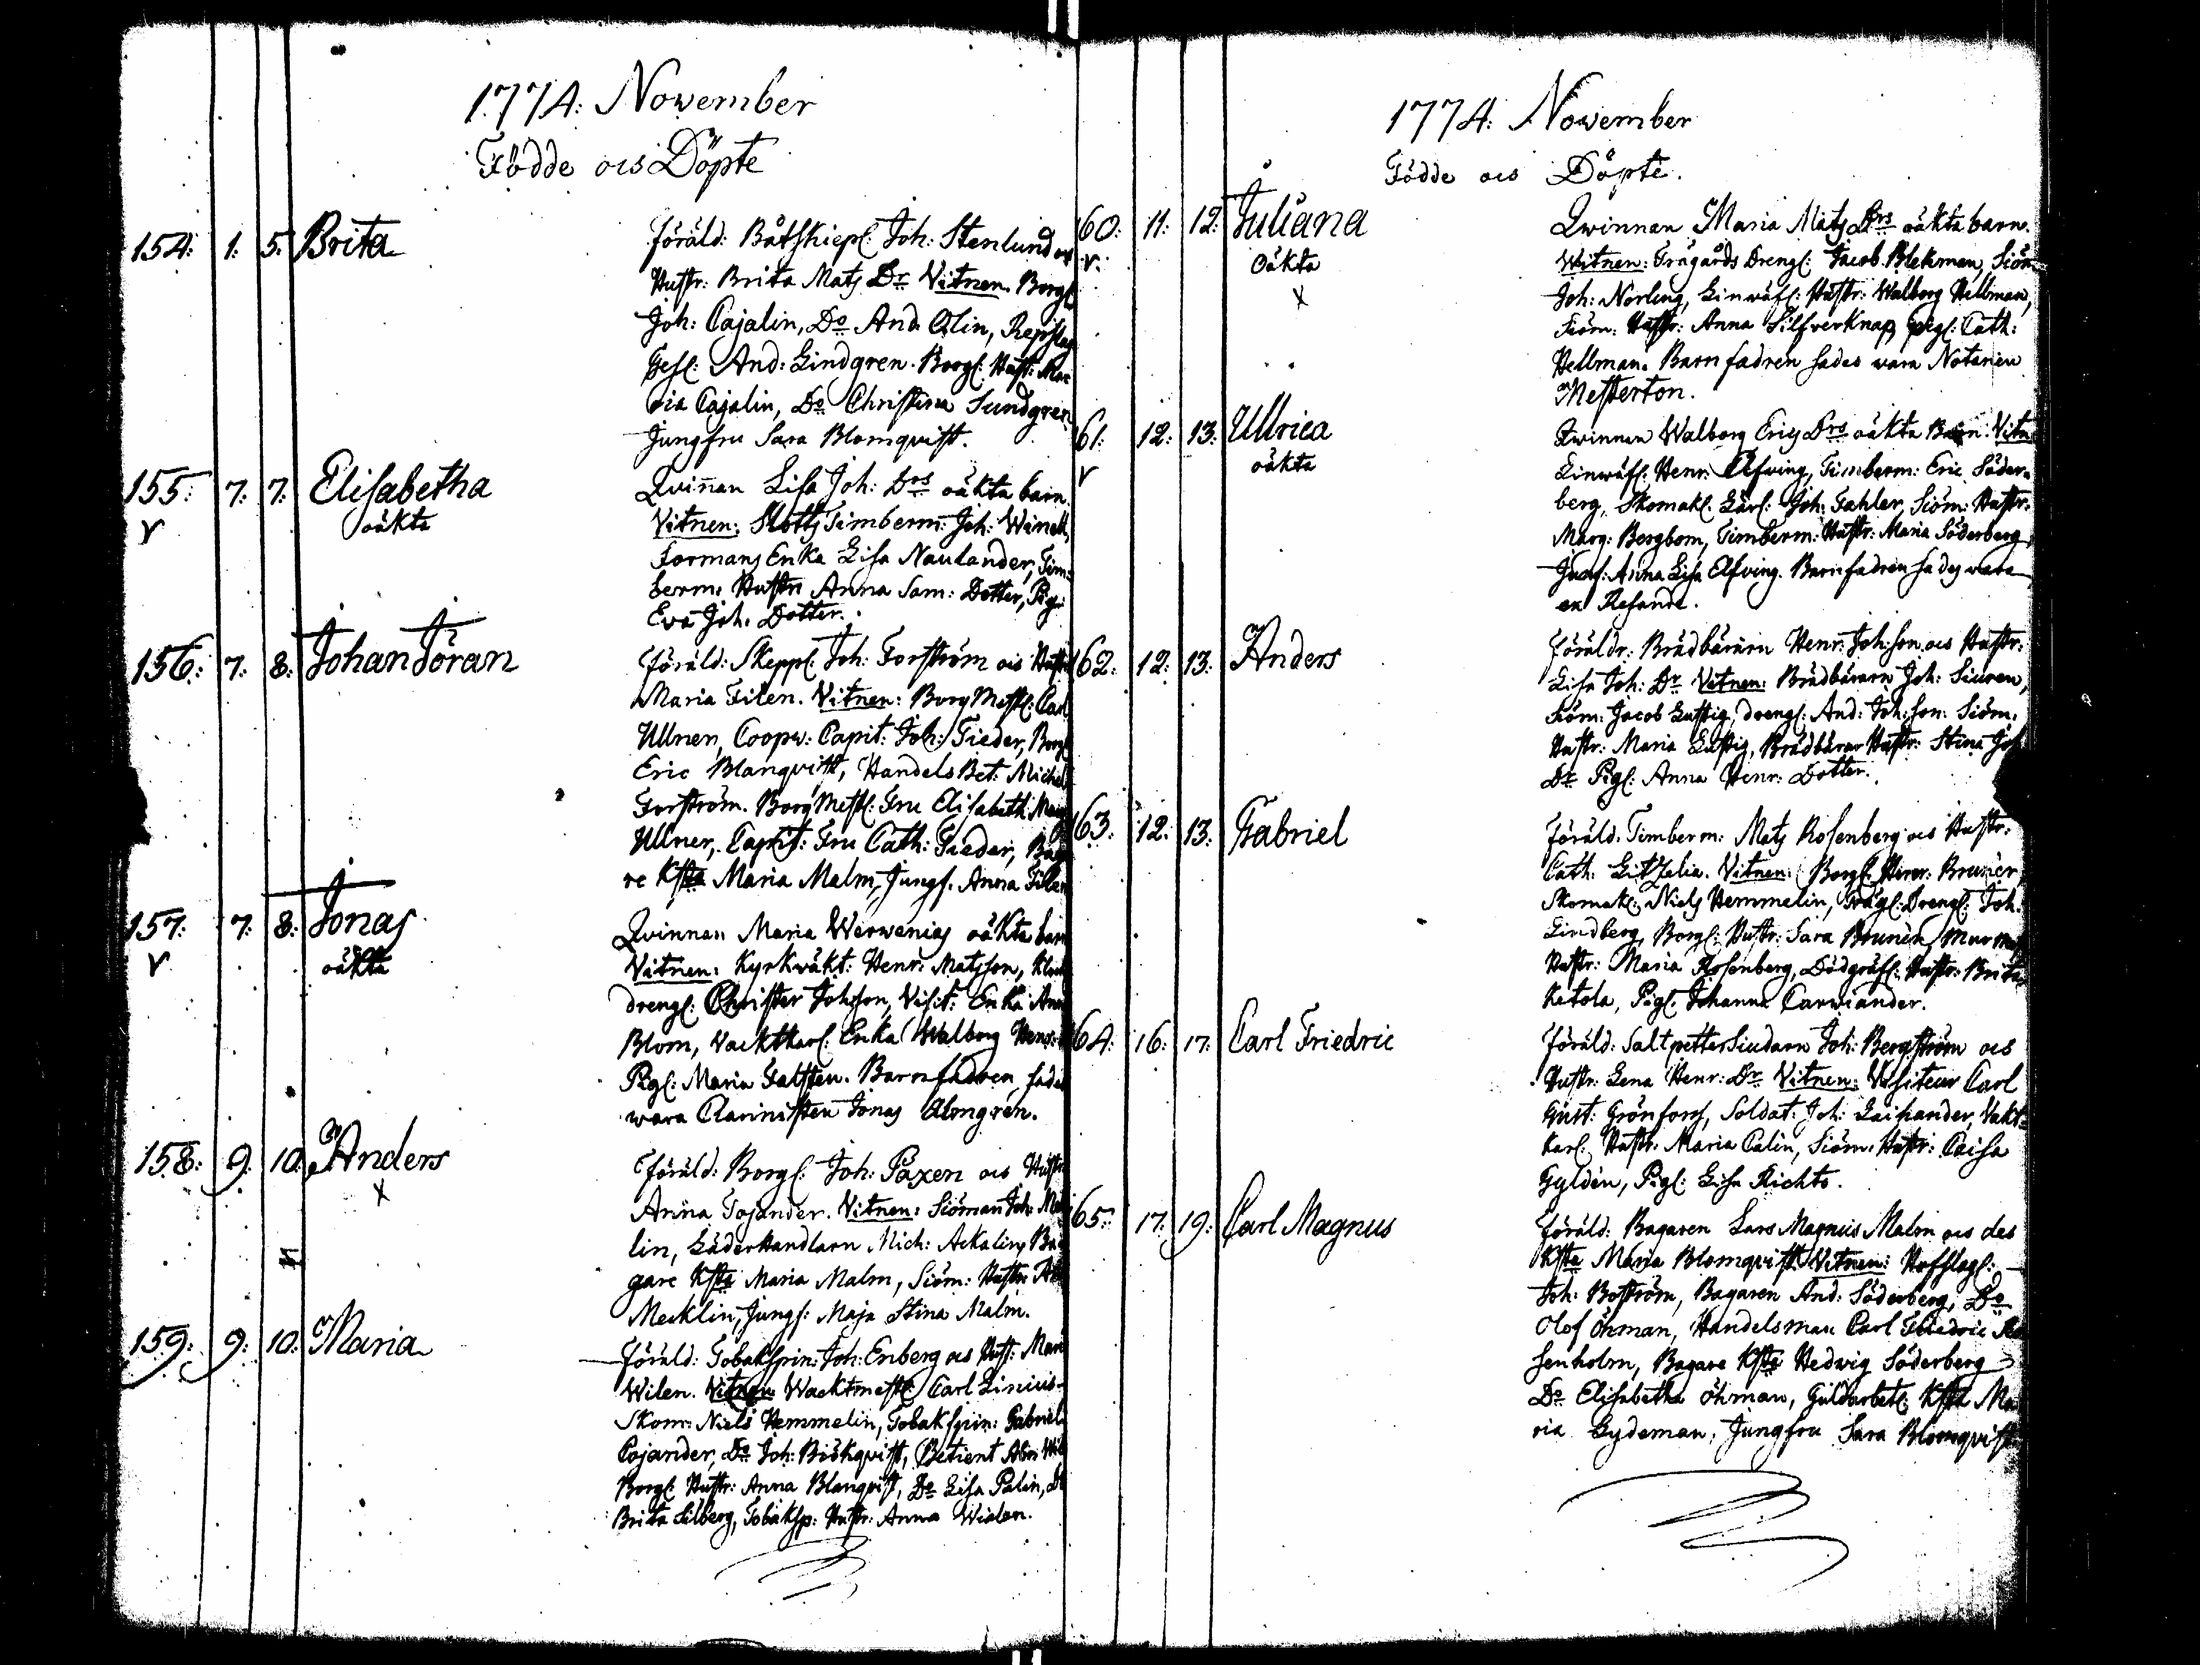 1774: November
Födde ocs Döpte
154: 1: 5: Brita
föräld: Båtskiepl: Joh: Stenlund os
Hustr: Brita Mats Dr Vitnen. Borgl
Joh: Cajalin, Do And Olin, Repslag
Gesl: And: Lindgren. Borgl: Hust: Ma
ria Cajalin, Do Christina Sundgren
Jungfru Sara Blomqvist.
155: 7: 7: Elisabetha
oäkta
v
Qvinnan Lisa Joh: Drs oäkta barn
Vitnen: Slotts Timberm: Joh: Winell,
Formans Enka Lisa Naulander, Tim:
berm: Hustr: Anna Sam: Dotter, Pig:
Eva Joh: Dotter.
156: 7: 8: Johan Jöran
föräld: Skeppl: Joh: Forsström ocs Hustr
Maria Filen. Vitnen: Borg Mestl: Carl
Ullner, Coopw: Capit: Joh: Fieder, Borgl
Eric Blanqvist, Handels Bet: Michel
Forsström. Borg Mestl: Fru Elisabeth Mar
Ullner, Capit: Fru Cath: Fieder, Baga
re Ksta Maria Malm, Jungf. Anna Filen
157: 7: 8: Jonas
oäkta
v
Qvinnan Maria Werwenias oäkta barn
Vitnen: Kyrkwäkt: Henr: Matsson, Klock
drengl: Christer Johsson, Visit: Enka Anna
Blom, Vacktkarl: Enka Walborg Henr:
Pigl: Maria Falsten. Barnfadren sades
wara Clarinisten Jonas Almgren.
158: 9: 10: Anders
x
föräld: Borgl: Joh: Paxen ocs Hustr
Anna Tojander. Vitnen: Siöman Joh: Meck
lin, Läderhandlarn Mich: Ackalin, Ba
gare Ksta Maria Malm, Siöm: Hustr:
Mecklin, Jungf: Maja Stina Malm.
159: 9: 10: Maria
föräld: Tobakspin: Joh: Enberg ocs Hust: Maria
Wilen. Vitnen: Wacktmestl: Carl Linius
Skom: Niels Hemmelin, Tobakspin: Gabriel
Cojander, Do Joh: Biörkqvist, Betient Abr: Wil
Borgl: Hustr: Anna Blanqvist, Do Lisa Palin, Do
Brita Silberg, Tobaksp: Hustr: Anna Wialen.
1774: November
Födde ocs Döpte.
160: 11: 12: Juliana
v. oäkta
x
Qwinnan Maria Mats Drs oäkta barn.
Witnen: Trägårds Drengl: Jacob Blekman, Siöm
Joh: Norling, Linwäfl: Hustr: Walborg Hellman,
Siöm: Hustr: Anna Silfverknap, Pigl: Cath:
Hellman. Barnfadren sades wara Notarien
Mesterton.
161: 12: 13: Ullrica
v oäkta
Qwinnan Walborg Erics Drs oäkta Barn. Vitn
Linwäfl: Henr: Elfving, Timberm: Eric Söder
berg, Skomakl: Lärl: Joh: Fahler, Siöm: Hustr:
Marg: Bergbom, Timberm: Hustr: Maria Söderberg,
Jungf: Anna Lisa Elfving. Barnfadren sades wara
en Resande.
162: 12: 13: Anders
föräldr: Brädbärarn Henr: Joh:son ocs Hustr:
Lisa Joh: Dr Vitnen: Brädbärarn Joh: Siuren,
Siöm: Jacob Lustig, drengl: And: Joh:son: Siöm:
Hustr: Maria Lustig, Brädbärar Hustr: Stina Joh
Dr Pigl: Anna Henr: Dotter.
163: 12: 13: Gabriel
föräld: Timberm: Mats Rosenberg ocs Hustr:
Cath: Litzelia. Vitnen: Borgl: Henr: Brunèr,
Skomakl: Niels Hemmelin, Trägl: Drengl: Joh:
Lindberg, Borgl: Hustr: Sara Brunèr, Mur Mes
Hustr: Maria Rosenberg, Dödgräfl: Hustr: Brita
Ketola, Pigl: Johanna Carwiander.
164: 16: 17: Carl Friedric
föräld: Saltpetter Siudarn Joh: Bergström ocs
Hustr: Lena Henr: Dr Vitnen: Visiteur Carl
Gust: Grönfors, Soldat: Joh: Laihander, Vakt:
karl: Hustr: Maria Calin, Siöm: Hustr: Caisa
Gyldén, Pigl: Lisa Richts.
165: 17: 19: Carl Magnus
föräld: Bagaren Lars Magnus Malm ocs des
Ksta Maria Blomqvist. Vitnen: Hofslagl:
Joh: Boström, Bagaren And: Söderberg, Do
Olof Öhman, Handelsman Carl Friedric Ro
senholm, Bagare Ksta Hedvig Söderberg
Do Elisabetha Öhman, Guldarbetl: Ksta Ma
ria Lydeman, Jungfru Sara Blomqvist